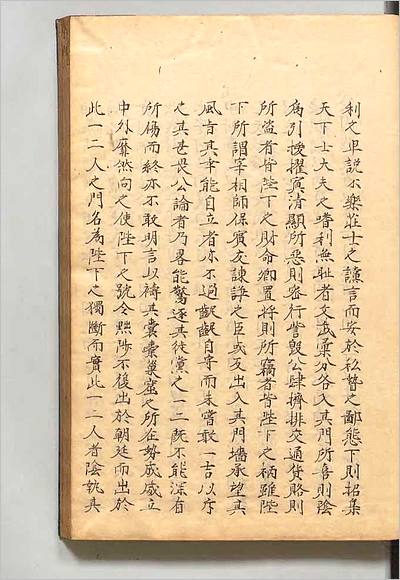 利之卑說不樂莊士之讜言而安於私暬之鄙態下則招集
天下士大夫之嗜利無耻者文武彙分各入其門所喜則陰
為引援擢寘清顯所惡則密行訾毀公肆擠排交通貨賂則
所盜者皆陛下之財命卿置將則所竊者皆陛下之柄雖陛
下所謂宰相師保賓友諫諍之臣或反出入其門墻承望其
風旨其幸能自立者亦不過齪齪自守而未嘗敢一言以斥
之其甚畏公論者乃畧能驚逐其徒黨之一二既不能深有
所傷而終亦不敢明言以擣其囊橐巢窟之所在勢成威立
中外靡然向之使陛下之號令黜陟不復出於朝廷而出於
此一二人之門名為陛下之獨斷而實此一二人者陰執其